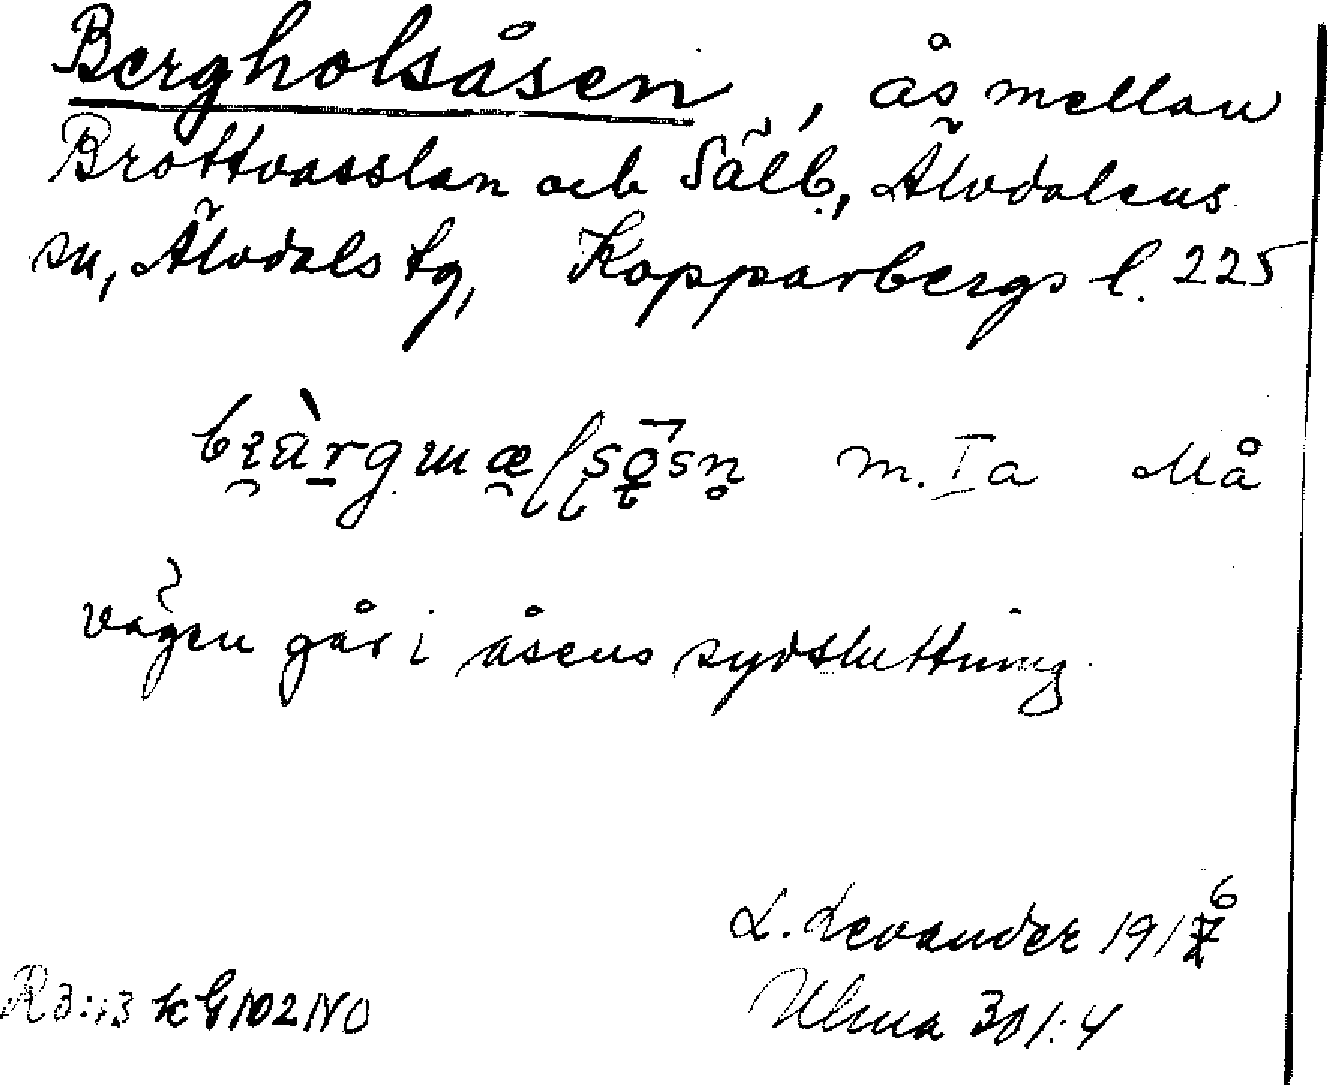 Bergholsåsen, ås mellan
Brottvasslan och Sälb., Älvdalens
sn, Älvdals tg, Kopparbergs l. 225
m. Ia Må
vägen går i åsens sydsluttning.
L. Levander 1916
Ulma 301:4